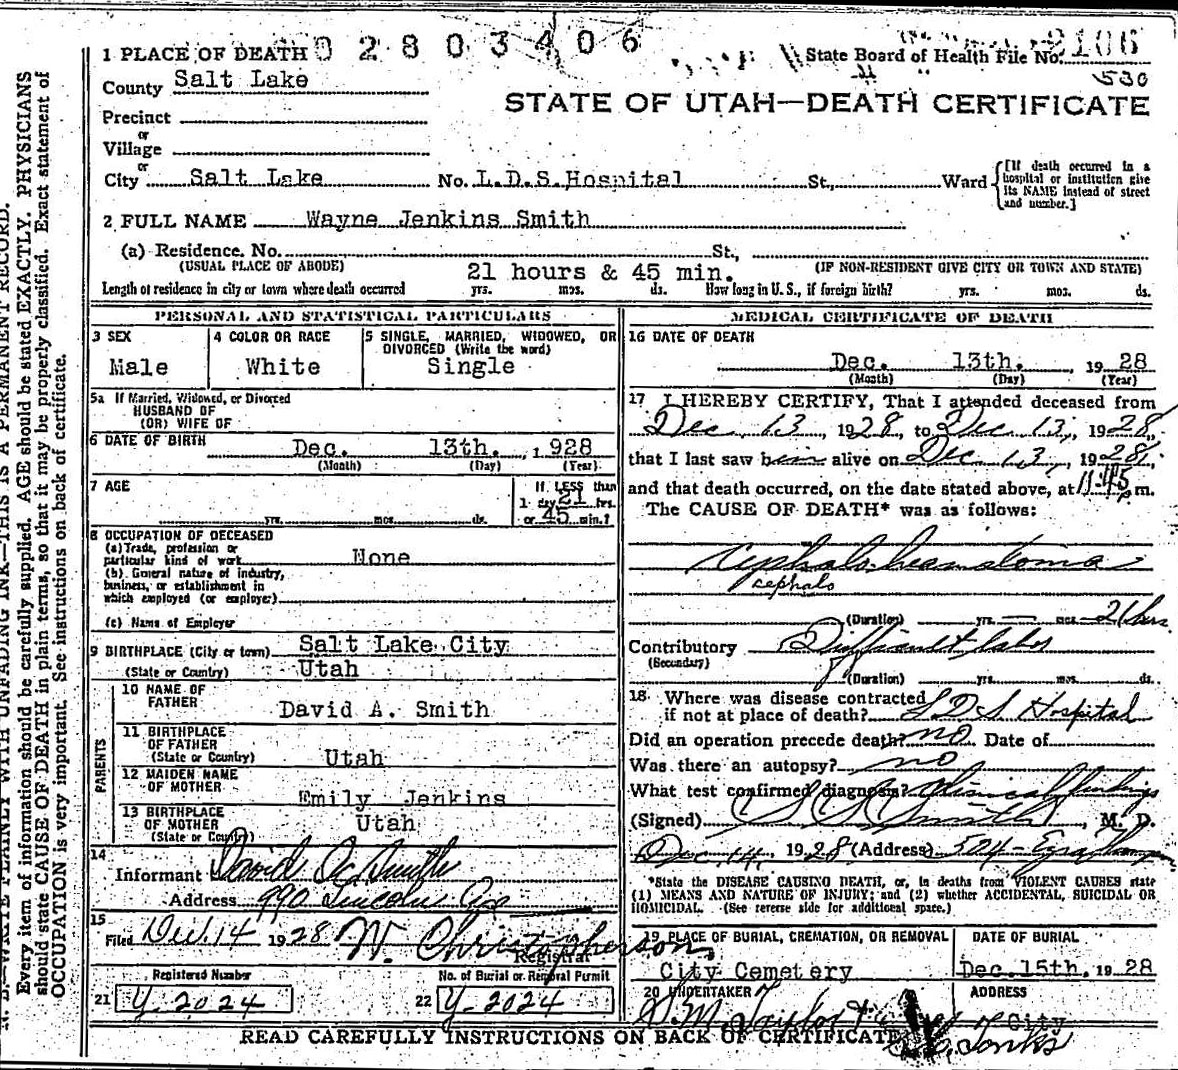 1 PLACE OF DEATH 02803406 State Board of Health File No. 2106
County Salt Lake 530
STATE OF UTAH—DEATH CERTIFICATE
Precinct
or
Village
or
City Salt Lake No. L.D.S. Hospital St., Ward [If death occurred in a hospital or institution give its NAME instead of street and number.]
2 FULL NAME Wayne Jenkins Smith
(a) Residence. No. St.,
(USUAL PLACE OF ABODE) (IF NON-RESIDENT GIVE CITY OR TOWN AND STATE)
21 hours & 45 min.
Length of residence in city or town where death occurred yrs. mos. ds. How long in U. S., if foreign birth? yrs. mos. ds.
PERSONAL AND STATISTICAL PARTICULARS
3 SEX
Male
4 COLOR OR RACE
White
5 SINGLE, MARRIED, WIDOWED, OR
DIVORCED (Write the word)
Single
5a If Married, Widowed, or Divorced
HUSBAND OF
(OR) WIFE OF
6 DATE OF BIRTH Dec. 13th. , 1 928
(Month) (Day) (Year)
7 AGE
yrs. mos. ds.
If LESS than
1 day 21 hrs.
or 45 min.?
8 OCCUPATION OF DECEASED
(a) Trade, profession or
particular kind of work None
(b) General nature of industry,
business, or establishment in
which employed (or employer)
(c) Name of Employer
9 BIRTHPLACE (City or town) Salt Lake City
(State or Country) Utah
PARENTS
10 NAME OF
FATHER
David A. Smith
11 BIRTHPLACE
OF FATHER
(State or Country) Utah
12 MAIDEN NAME
OF MOTHER
Emily Jenkins
13 BIRTHPLACE
OF MOTHER Utah
(State or Country)
14
Informant David A. Smith
Address 990 Lincoln
15
Filed Dec. 14 1928 W. Christopherson
Registrar
Registered Number No. of Burial or Removal Permit
21 Y-2024 22 Y-2024
MEDICAL CERTIFICATE OF DEATH
16 DATE OF DEATH
Dec. 13th. , 19 28
(Month) (Day) (Year)
17 I HEREBY CERTIFY, That I attended deceased from
Dec 13, 1928, to Dec 13, 1928,
that I last saw him alive on Dec 13, 1928,
and that death occurred, on the date stated above, at 11:45 p m.
The CAUSE OF DEATH* was as follows:
Cephalo-heamatoma
cephalo
(Duration) yrs. — mos. — 21 hrs
Contributory Difficult labor
(Secondary)
(Duration) yrs. mos. ds.
18 Where was disease contracted
if not at place of death? L.D.S. Hospital
Did an operation precede death? no Date of
Was there an autopsy? no
What test confirmed diagnosis? Clinical findings
(Signed) Smith, M. D.
Dec. 14, 1928 (Address) 504-Ezra
*State the DISEASE CAUSING DEATH, or, in deaths from VIOLENT CAUSES state
(1) MEANS AND NATURE OF INJURY; and (2) whether ACCIDENTAL, SUICIDAL OR
HOMICIDAL. (See reverse side for additional space.)
19 PLACE OF BURIAL, CREMATION, OR REMOVAL
City Cemetery
DATE OF BURIAL
Dec. 15th. 19 28
20 UNDERTAKER
S.M. Taylor
ADDRESS
City
READ CAREFULLY INSTRUCTIONS ON BACK OF CERTIFICATE
N. B.—WRITE PLAINLY WITH UNFADING INK—THIS IS A PERMANENT RECORD.
Every item of information should be carefully supplied. AGE should be stated EXACTLY. PHYSICIANS
should state CAUSE OF DEATH in plain terms, so that it may be properly classified. Exact statement of
OCCUPATION is very important. See instructions on back of certificate.